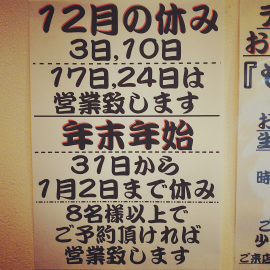 12月の休み
3日,10日
17日,24日は
営業致します
年末年始
31日から
1月2日まで休み
8名様以上で
ご予約頂ければ
営業致します
お
『も
お
時
ご
少
ご来店